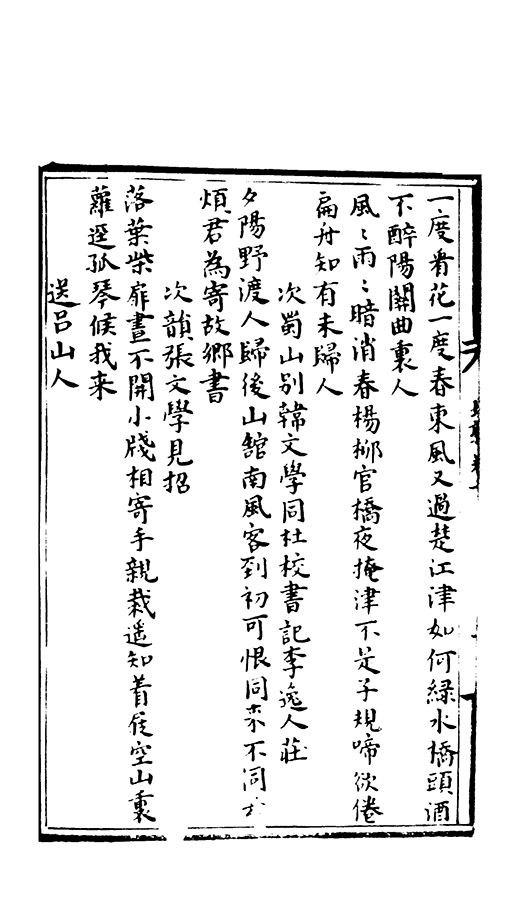 一度看花一度春東風又過楚江津如何綠水橋頭酒
不醉陽關曲裏人
風〻雨〻暗消春楊柳官橋夜掩津不是子規啼欲倦
扁舟知有未歸人
次蜀山別韓文學同杜校書記李逸人莊
夕陽野渡人歸後山舘南風客到初可恨同来不同
煩君為寄故鄉書
次韻張文學見招
落葉柴扉晝不開小牋相寄手親裁遥知着屐空山裏
蘿逕孤琴候我来
送呂山人